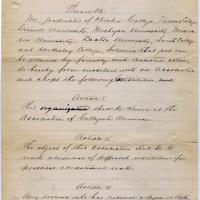 Preamble.
We, graduates of Oberlin College, Vassar College,
Cornell University, Michigan University, Wiscon-
sin University, Boston University, Smith College
and Wellesley College, believing that good can
be attained by friendly and United action,
do hereby form ourselves into an Association
and adopt the following Constitution and
Article I
This organization shall be known as the
Association of Collegiate Alumnae.
Article II
The object of this Association shall be to
unite alumnae of different institutions for
practical educational work.
Article III
Any woman who has received a degree in Arts,